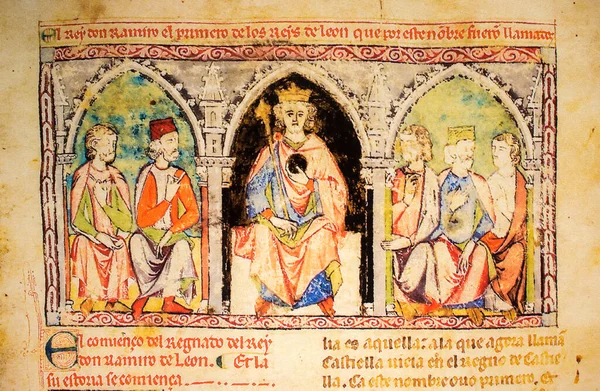 El Rey don Ramiro el primero de los Reys de leon que por este nõbre fuerõ llamados
El comienço del Regnado del Rey
don Ramiro de Leon. Et la
su estoria se comiença
lia es aquellas. a la que agora llamã
Castiella vieia en el Regno de Castie
lla. Ca este nombre ouo primero, Et